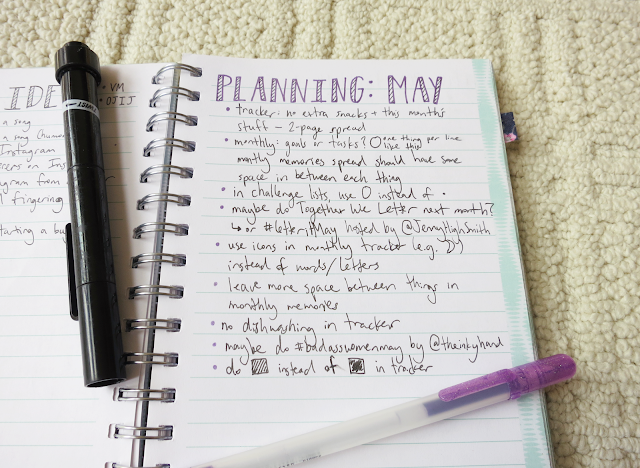 IDE
• VM
• OJIJ
a song
Instagram
on Ins
fingering
starting a
TWIST
PLANNING: MAY
• tracker: no extra snacks + this month's
stuff – 2-page spread
• monthly: goals or tasks? O one thing per line
like this
monthly memories spread should have some
space in between each thing
• in challenge lists, use O instead of •
• maybe do Together We Letter next month?
↳ or #letteritMay hosted by @JennyHighsmith
• use icons in monthly tracker (e.g. )
instead of words/letters
• leave more space between things in
monthly memories
• no dishwashing in tracker
• maybe do #badasswomenmay by @theinkyhand
• do instead of in tracker